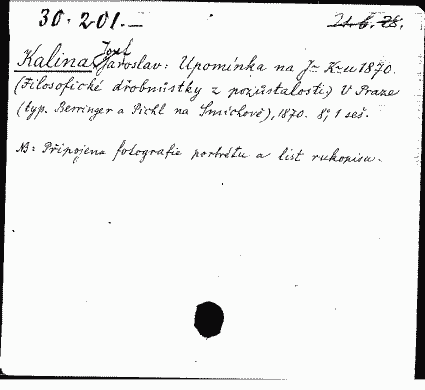 30.201.—
21.6.28.
Josef
Kalina, Jaroslav: Upomínka na J– K–u 1870.
(Filosofické drobnůstky z pozůstalosti) V Praze
(typ. Berringer a Pichl na Smíchově), 1870. 8°, 1 seš.
NB: Připojena fotografie portrétu a list rukopisu.